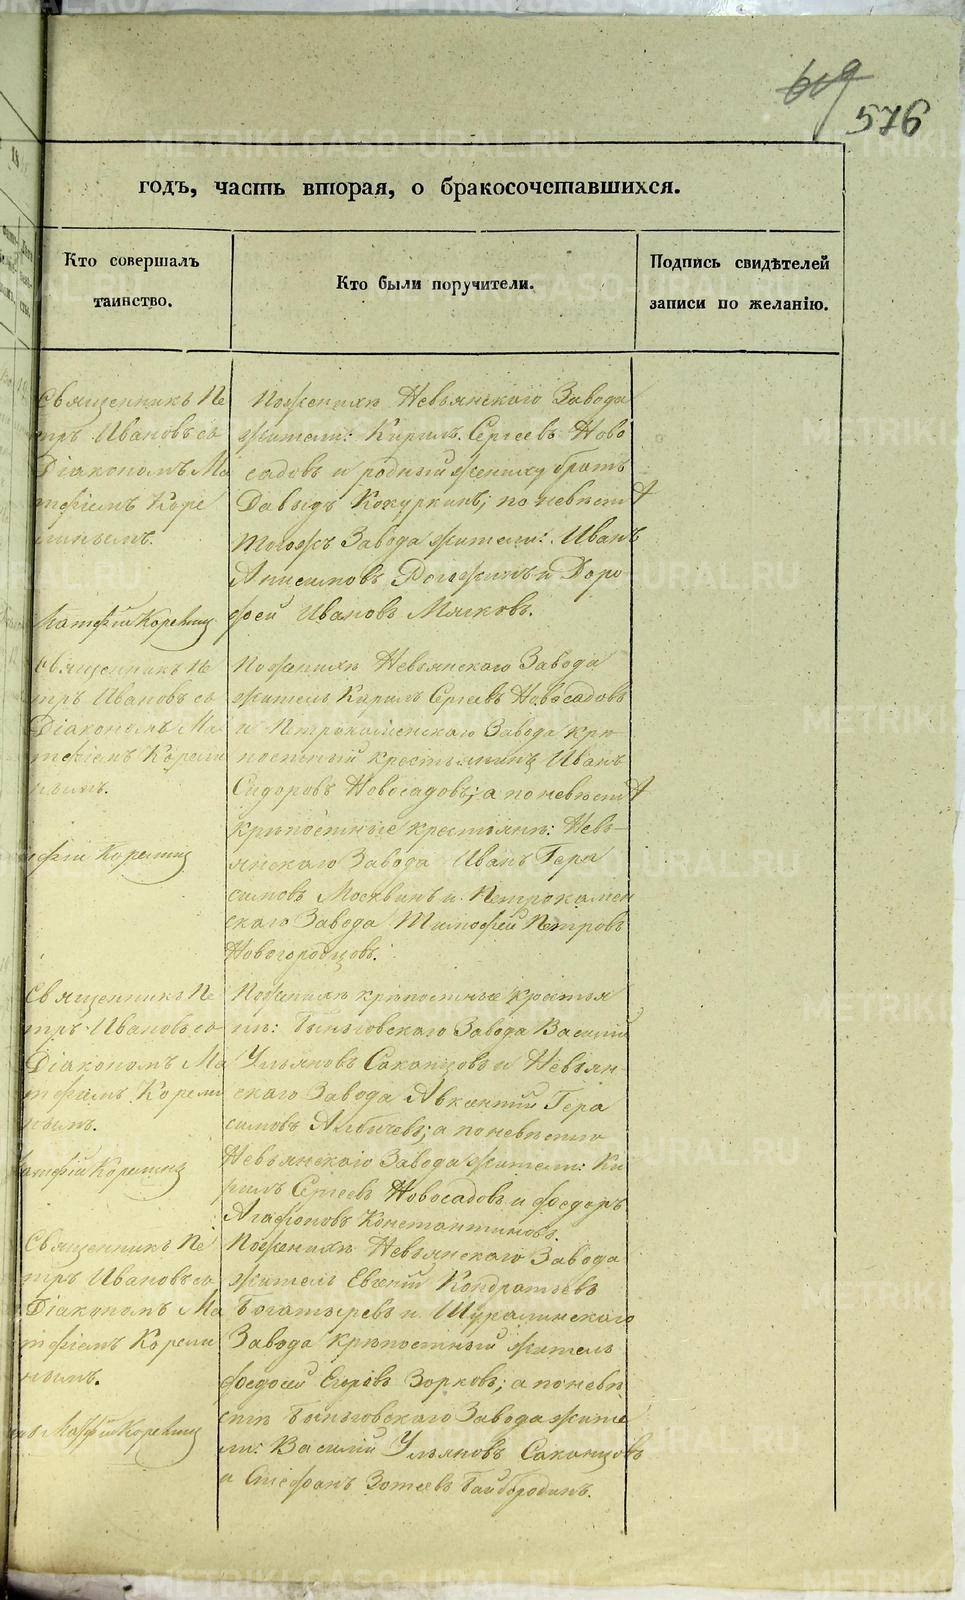 619
576
годъ, часть вторая, о бракосочетавшихся.
Кто совершалъ
таинство.
Кто были поручители.
Подпись свидѣтелей
записи по желанію.
Священникъ Пе
тръ Ивановъ со
Діакономъ Ма
тѳіемъ Коре
линымъ.
Матфій Корелинъ
По женихѣ Невьянскаго Завода
жители: Кирилъ Сергеевъ Ново
садовъ и родный жениху братъ
Давыдъ Кокуркинъ; по невѣстѣ
тогожъ Завода жители: Иванъ
Анисимовъ и Доро
фей Ивановъ Мягковъ.
Священникъ Пе
тръ Ивановъ со
Діакономъ Ма
тѳіемъ Корели
нымъ.
Корелинъ
По женихѣ Невьянскаго Завода
житель Кирилъ Сергеевъ Новосадовъ
и Петрокаменскаго Завода крѣ
постный крестьянинъ Иванъ
Сидоровъ Новосадовъ; а по невѣстѣ
крѣпостные крестьяне: Невь-
янскаго Завода Иванъ Гера
симовъ Москвинъ и Петрокамен
скаго Завода Тимофей Петровъ
Новогородцовъ.
Священникъ Пе
тръ Ивановъ со
Діакономъ Ма
тѳіемъ Корели
нымъ.
Матфій Корелинъ
По женихѣ крѣпостные крестья
не: Быньговскаго Завода Василій
Ульяновъ Саканцовъ и Невьян
скаго Завода Авксентій Гера
симовъ; а по невѣстѣ
Невьянскаго Завода жители: Ки
рилъ Сергеевъ Новосадовъ и Федоръ
Агафоновъ Константиновъ.
Священникъ Пе
тръ Ивановъ со
Діакономъ Ма
тѳіемъ Корели
нымъ.
Матфій Корелинъ
По женихѣ Невьянскаго Завода
житель Евгеній Кондратьевъ
Богатыревъ и Шуралинскаго
Завода крѣпостный житель
Федосей Егоровъ Зорковъ; а по невѣ
стѣ Быньговскаго Завода жите
ли: Василій Ульяновъ Саканцовъ
и Стефанъ Зотеевъ Байбородинъ.